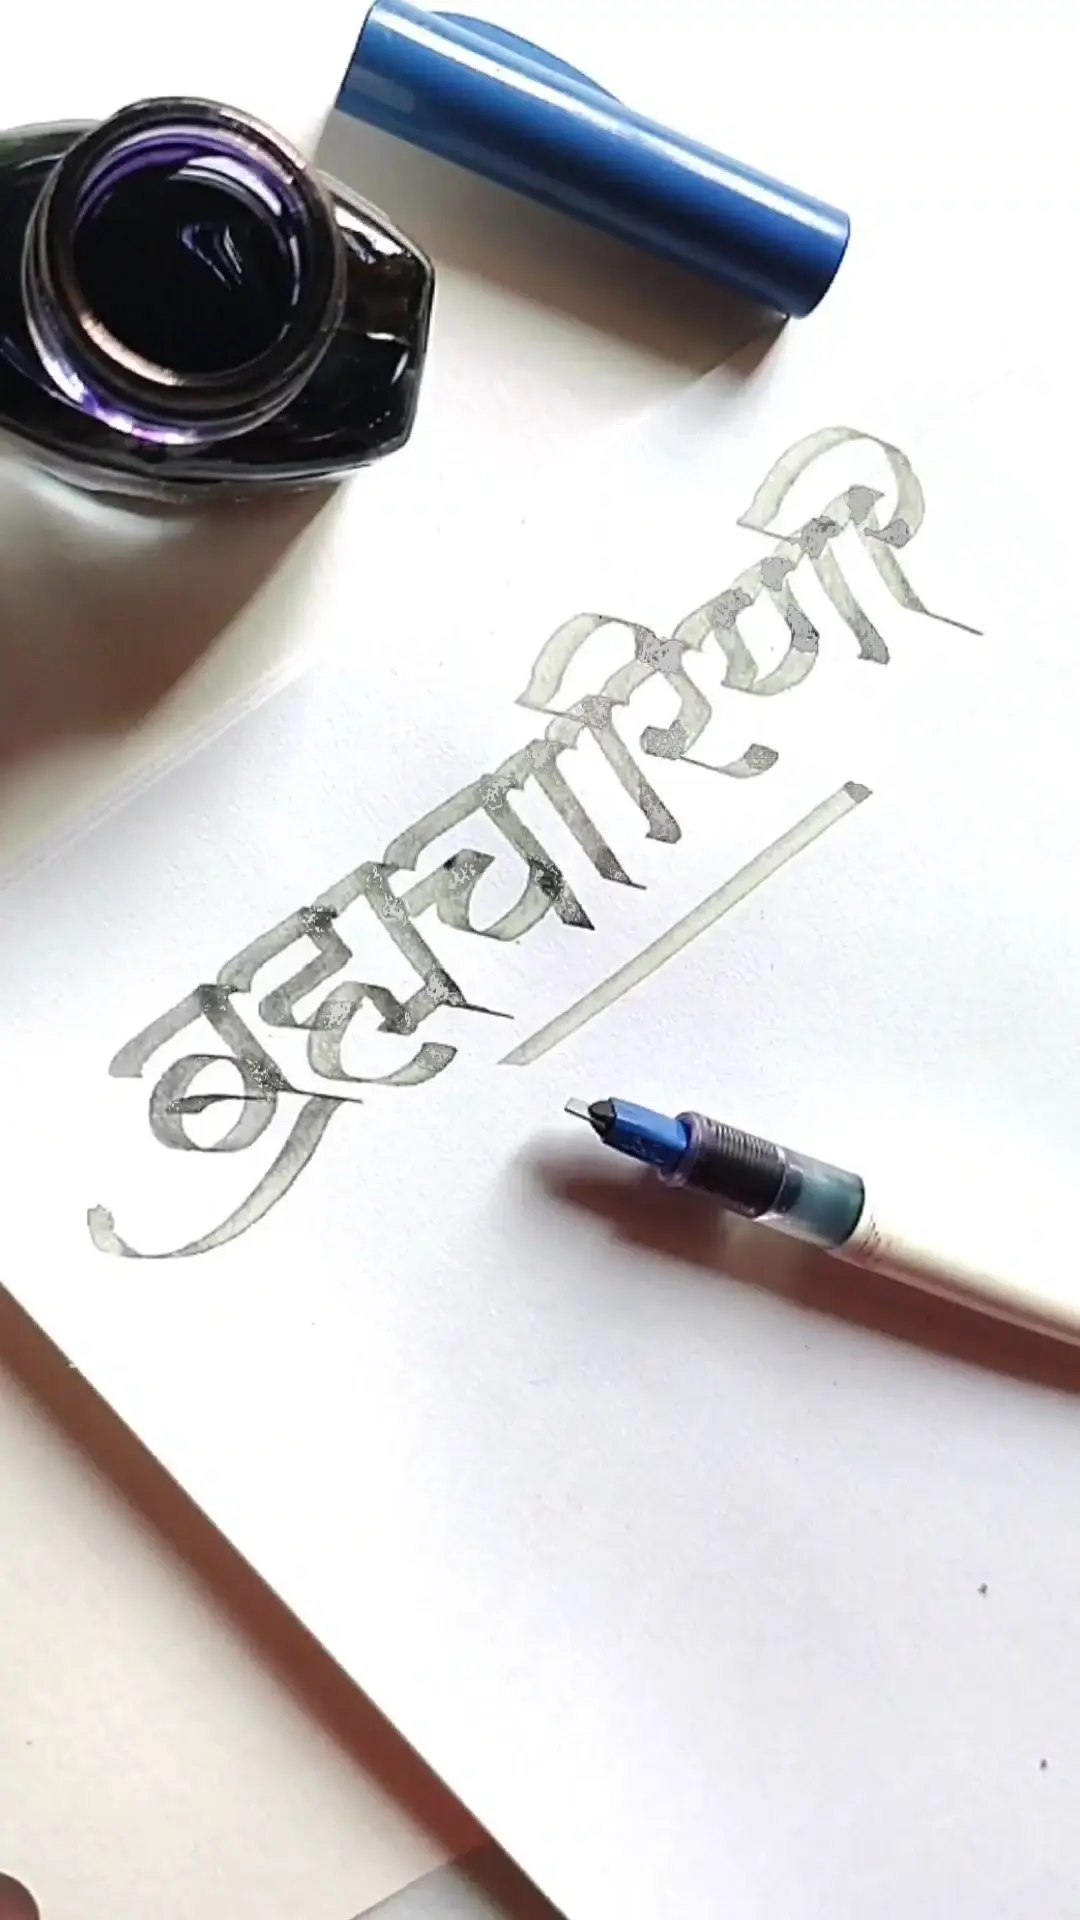 ब्रह्मचारिणी